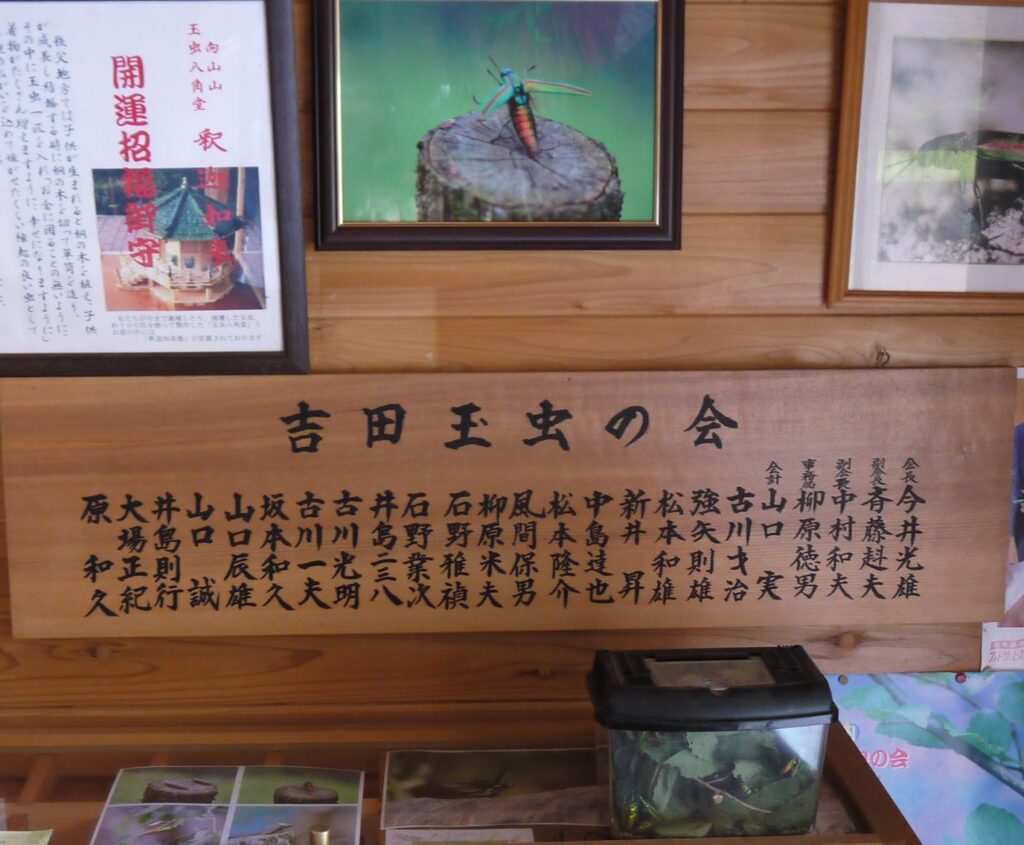 向山山
玉虫八角堂
釈迦如来
開運招福御守
秩父地方では子供が生まれると桐の木を植え、子供
が成長し結婚する時に桐の木を切って箪笥を造り、
その中に玉虫一匹を入れ「お金に困ることの無いように、
着物がたくさん増えますように、幸せになりますように」
吉田玉虫の会
会長 今井光雄
副会長 斉藤赳夫
副会長 中村和夫
事務局 柳原徳男
会計 山口 実
古川才治
強矢則雄
松本和雄
新井 昇
中島達也
松本隆介
風間保男
柳原米夫
石野雅禎
石野業次
井島二三八
古川光明
古川一夫
坂本和久
山口辰雄
山口 誠
井島則行
大場正紀
原 和久
の会